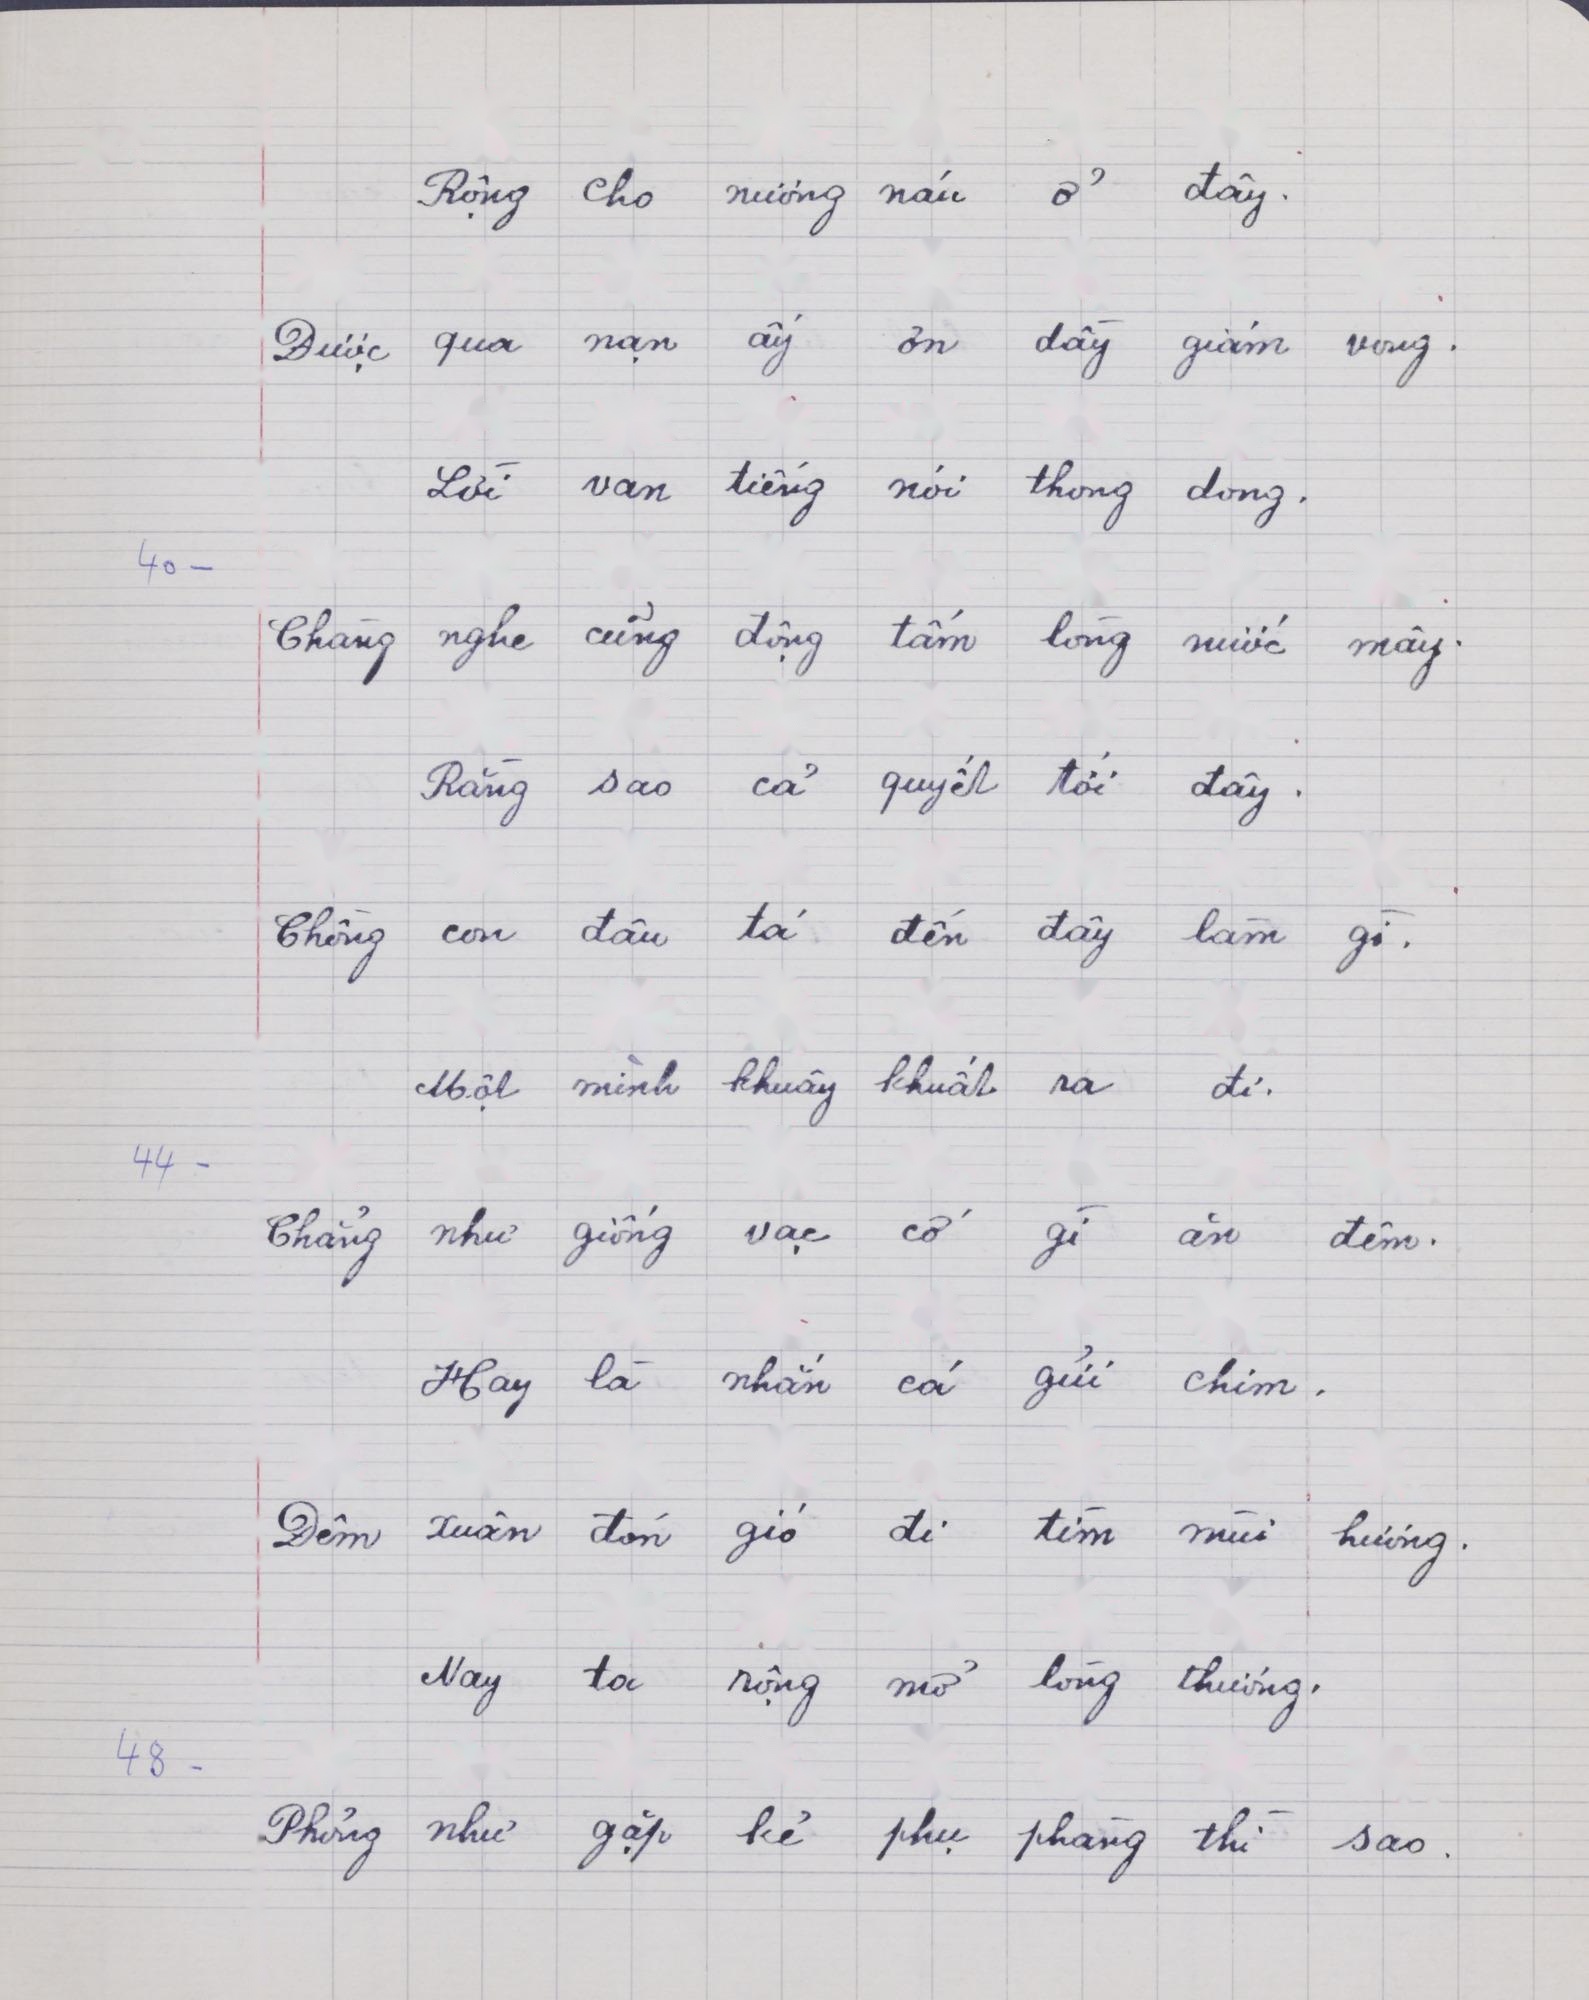 Rộng cho nương náu ở đây.
Được qua nạn ấy ơn dầy giám vong.
Lời van tiếng nói thong dong.
40 -
Chàng nghe cũng động tấm lòng nước mây.
Rằng sao cả quyết tới đây.
Chồng con đâu tá đến đây làm gì.
Một mình khuây khuất ra đi.
44 -
Chẳng như giống vạc cớ gì ăn đêm.
Hay là nhắn cá gửi chim.
Đêm xuân đón gió đi tìm mùi hương.
Nay ta rộng mở lòng thương.
48 -
Phỏng như gặp kẻ phụ phàng thì sao.